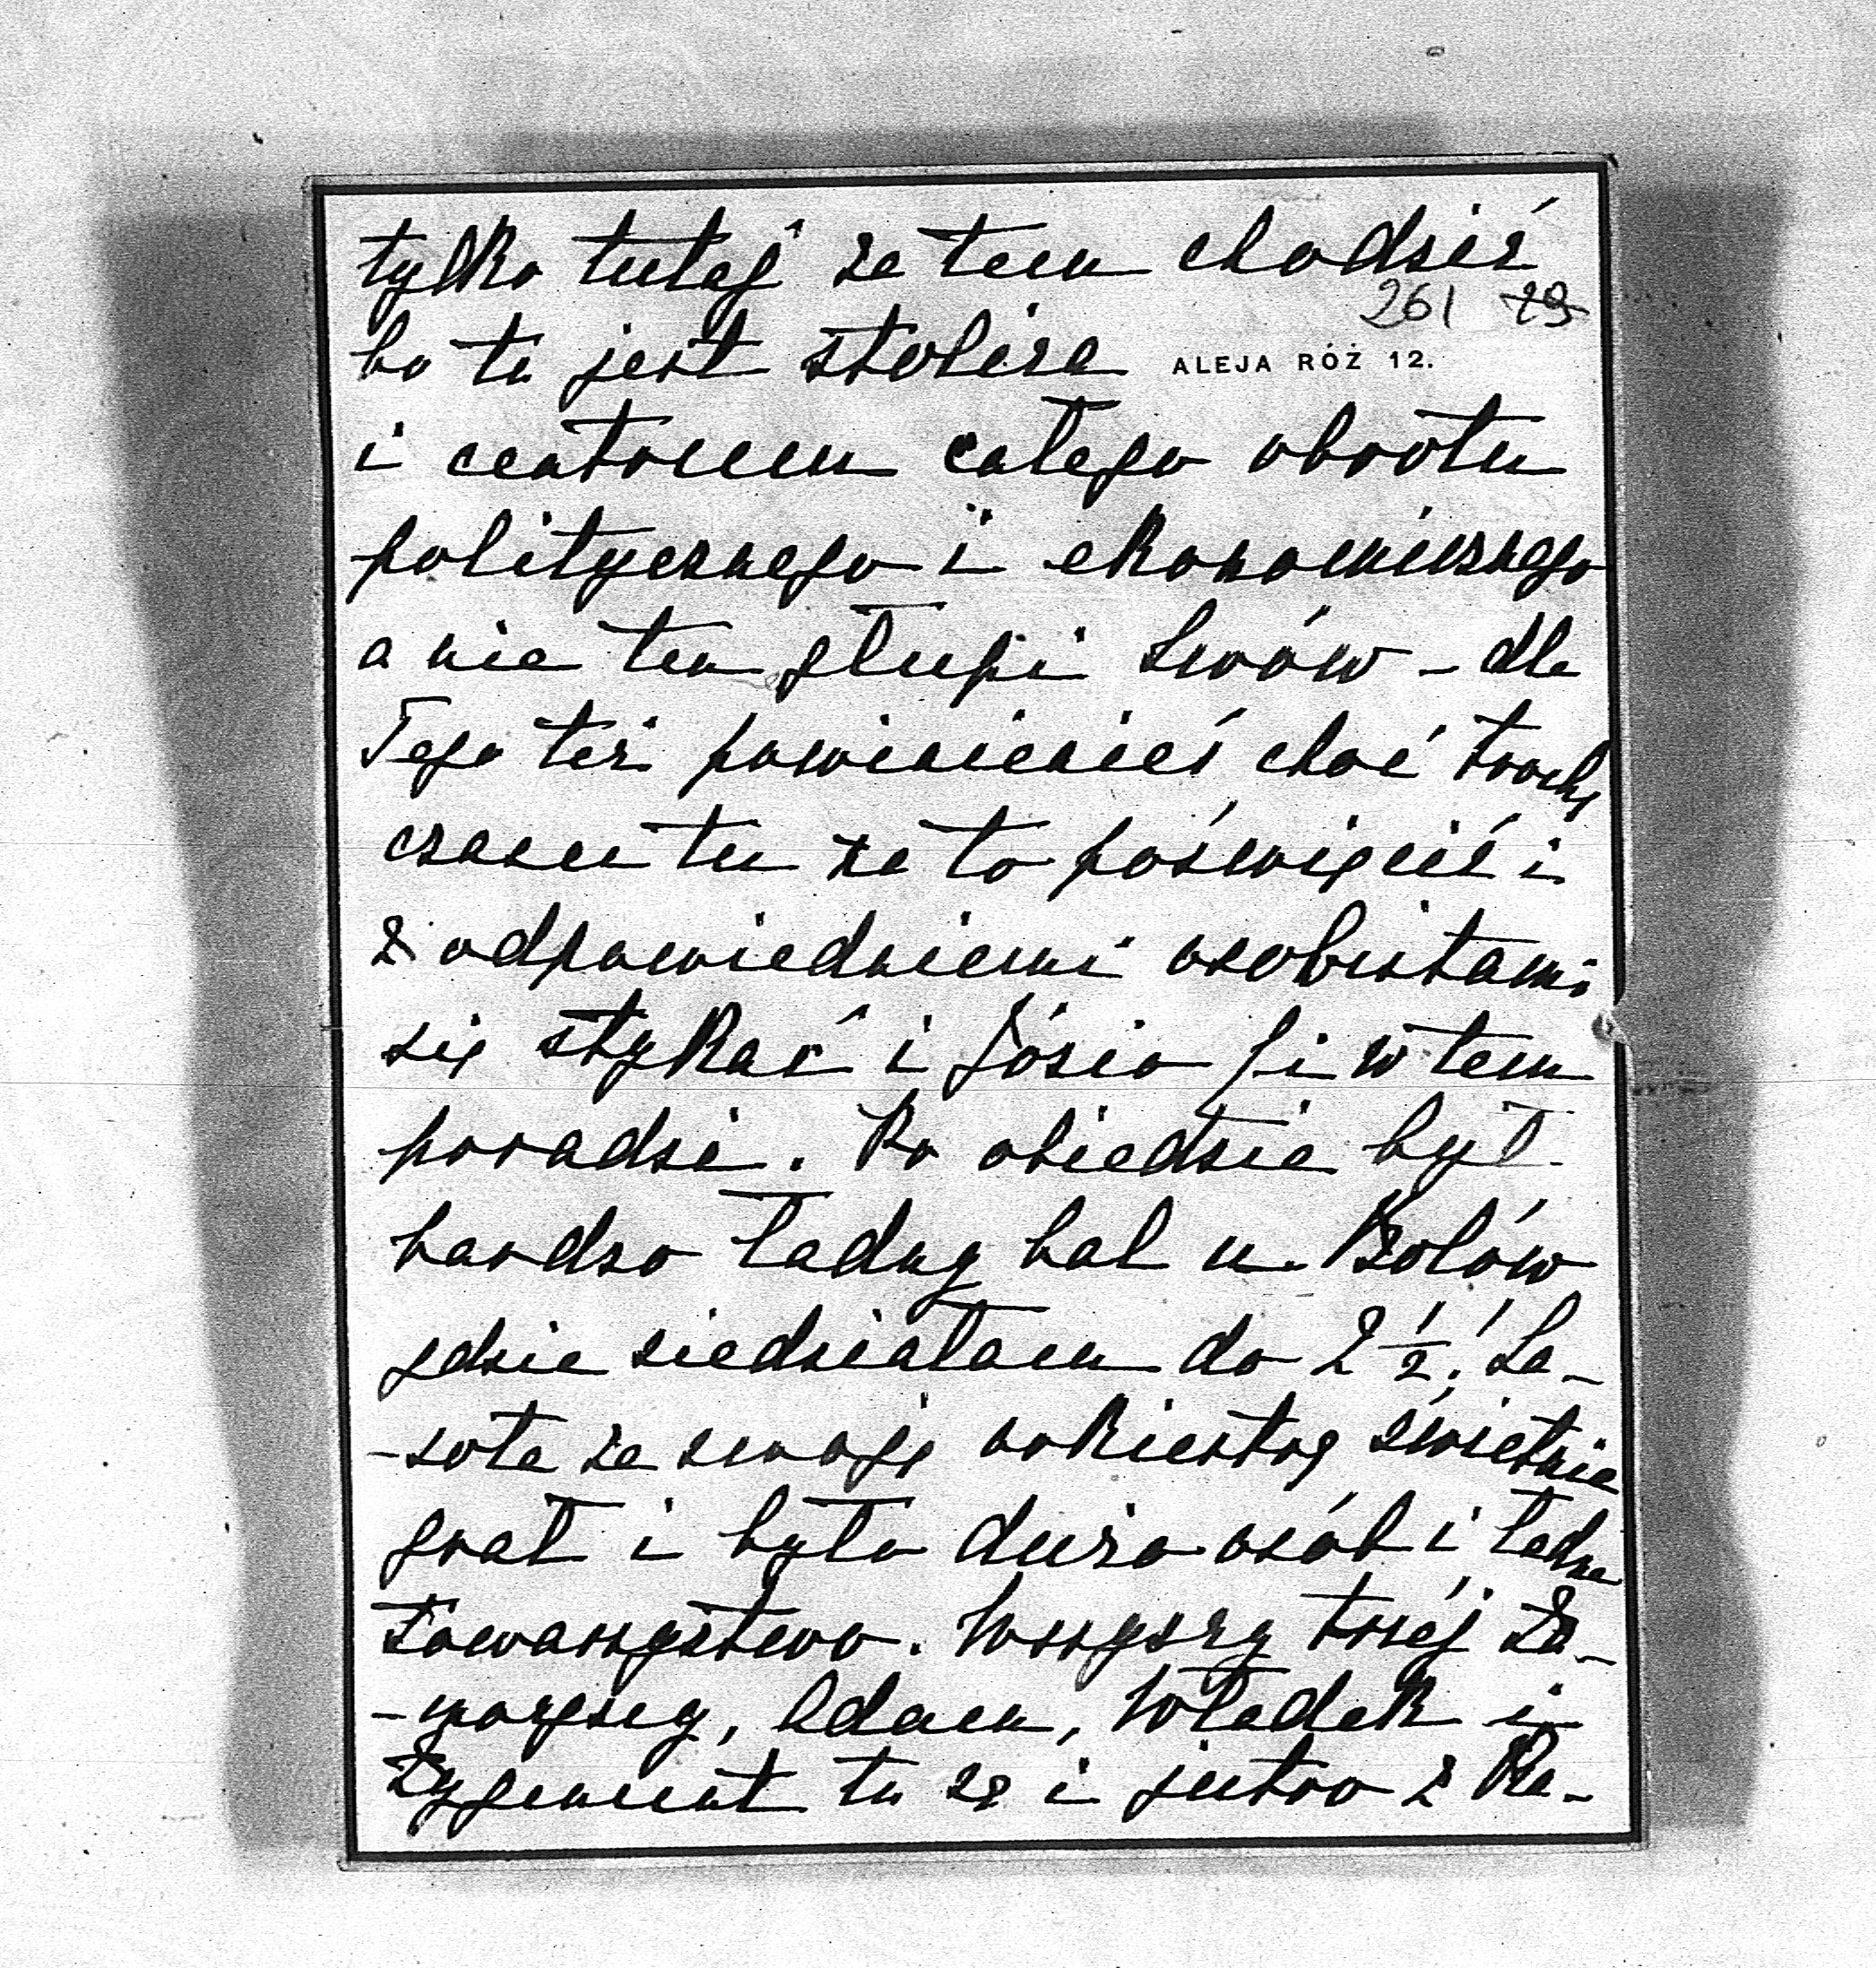 tylko tutaj za tem chodzić
261 29
bo tu jest stolica ALEJA RÓŻ 12.
i centrum całego obrotu
politycznego i ekonomicznego
a nie ten głupi Lwów – dla
Tego też powinieneś choć trochę
czasu tu na to poświęcić i
z odpowiedniemi osobistami
się stykać i Józio Ci w tem
poradzi. Po obiedzie był
bardzo ładny bal u
gdzie siedziałam do 2 ½! La-
-sota ze swoją orkiestrą świetnie
grał i było dużo osób i ładne
towarzystwo. Wszyscy trzéj Za-
-moyscy, Adam, Władek i
Zygmunt tu są i jutro z Ka-